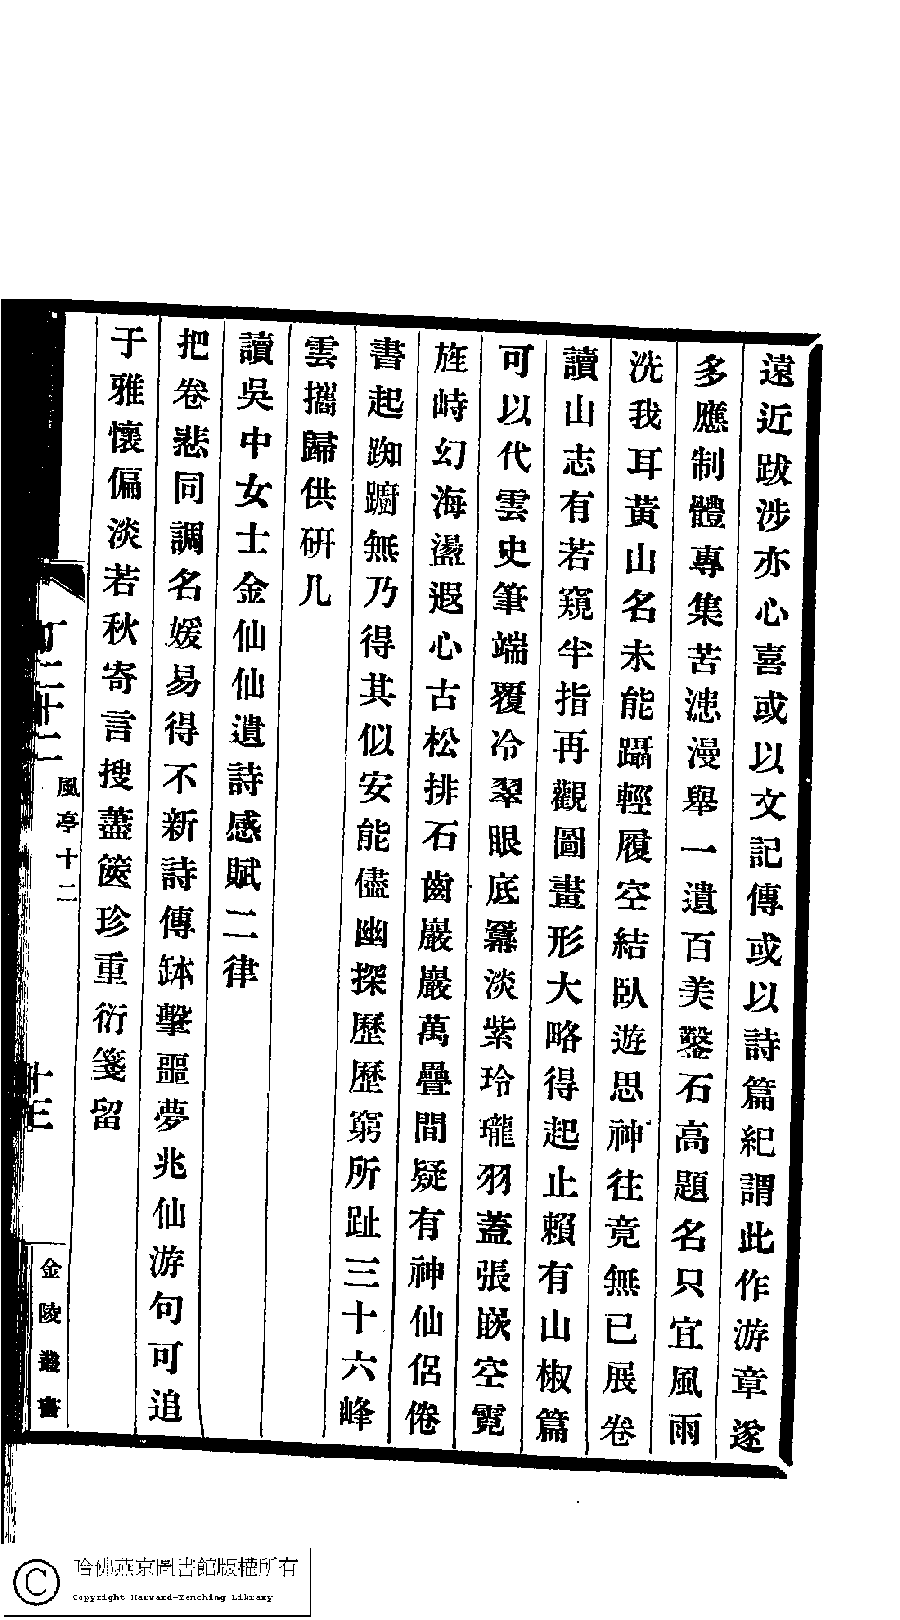 遠近跋涉亦心喜或以文記傳或以詩篇紀謂此作游章遂
多應制體專集苦漶漫舉一遺百美鑿石高題名只宜風雨
洗我耳黃山名未能躡輕履空結臥遊思神往竟無已展卷
讀山志有若窺半指再觀圖畫形大略得起止賴有山椒篇
可以代雲史筆端覆冷翠眼底冪淡紫玲瓏羽蓋張嵌空霓
旌峙幻海盪遐心古松排石齒巖巖萬疊間疑有神仙侶倦
書起踟躕無乃得其似安能儘幽探歷歷窮所趾三十六峰
雲攜歸供研几
讀吳中女士金仙仙遺詩感賦二律
把卷悲同調名媛易得不新詩傳缽擊噩夢兆仙游句可追
于雅懷偏淡若秋寄言搜藎篋珍重衍箋留
風亭十二
十三
金陵叢書
哈佛燕京圖書館版權所有
Copyright Harvard-Yenching Library